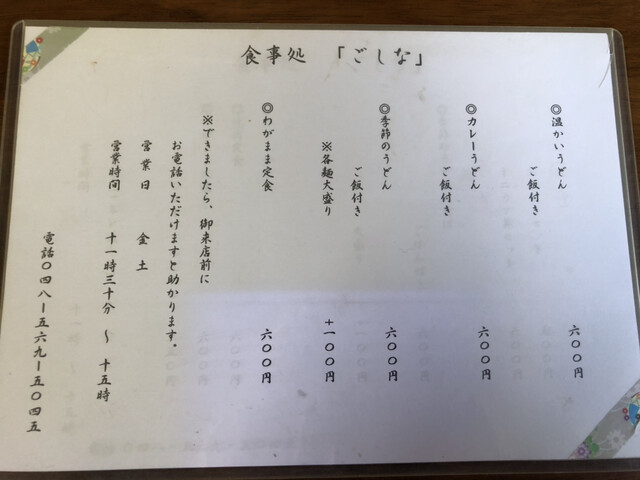 食事処　「ごしな」
◎温かいうどん　六〇〇円
ご飯付き
◎カレーうどん　六〇〇円
ご飯付き
◎季節のうどん　六〇〇円
ご飯付き
※各麺大盛り　+一〇〇円
◎わがまま定食　六〇〇円
※できましたら、御来店前に
お電話いただけますと助かります。
営業日　金　土
営業時間　十一時三十分　～　十五時
電話〇四八ー五六九ー五〇四五